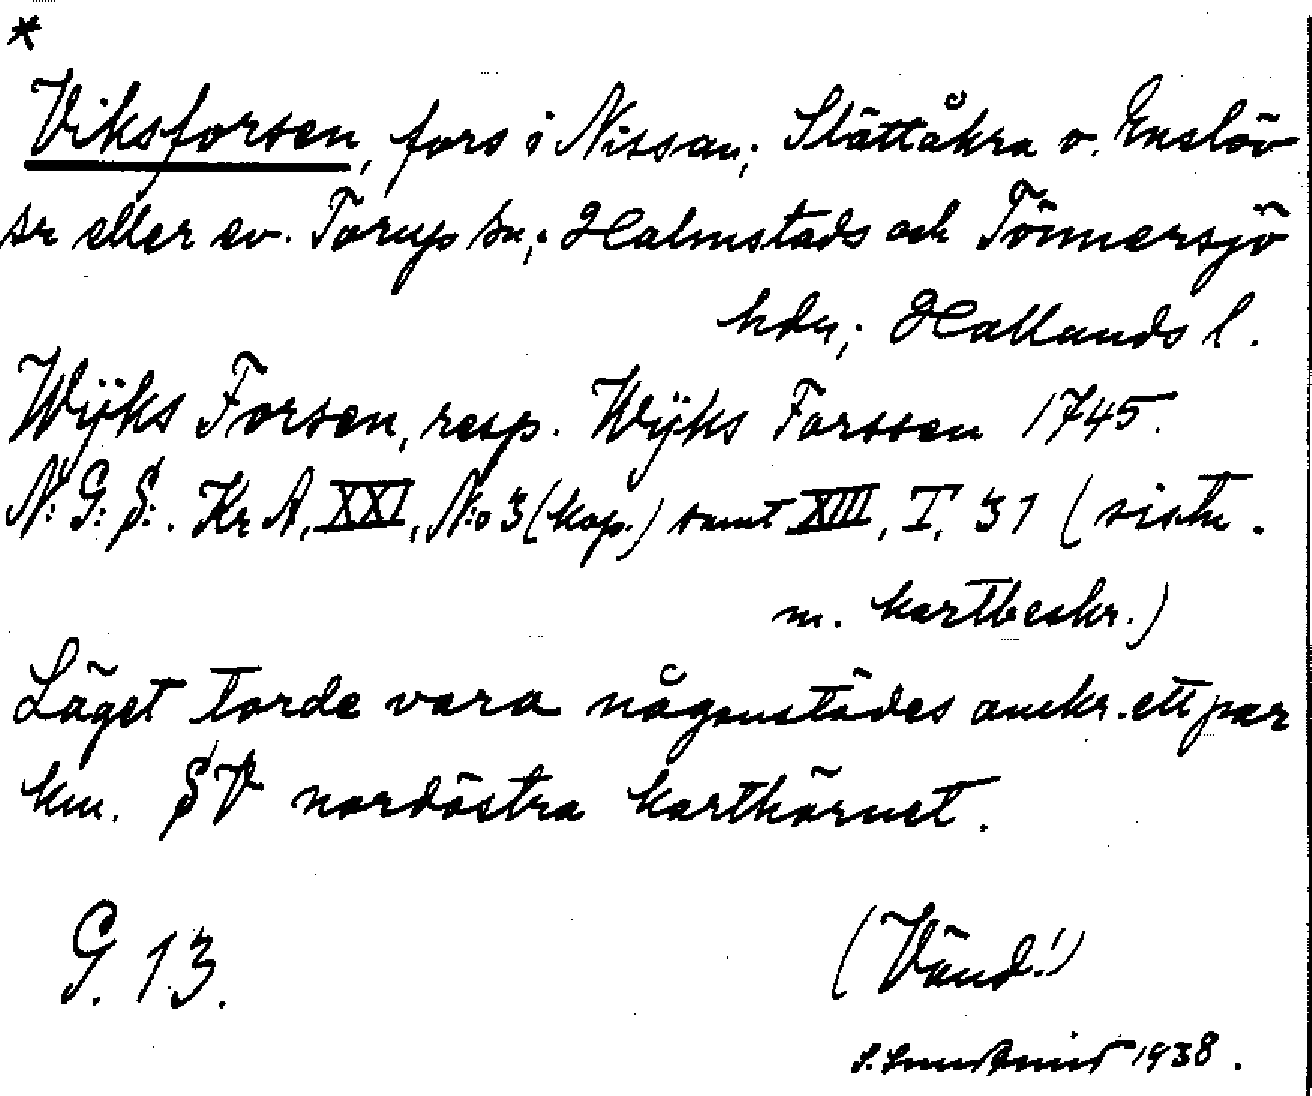 *
Viksforsen, fors i Nissan; Slättåkra o. Enslöv
sr eller ev. Torup sn; Halmstads och Tönnersjö
hdn; Hallands l.
Wÿks Forsen, resp. Wÿks Forssen 1745.
N: G: S:. Kr A. XXI, N:o 3 (kop.) samt XIII, I, 31 (sistn.
m. kartbeskr.)
Läget torde vara någonstädes omkr. ett par
km. SV nordöstra karthörnet.
G. 13.
(Vänd!)
1938.